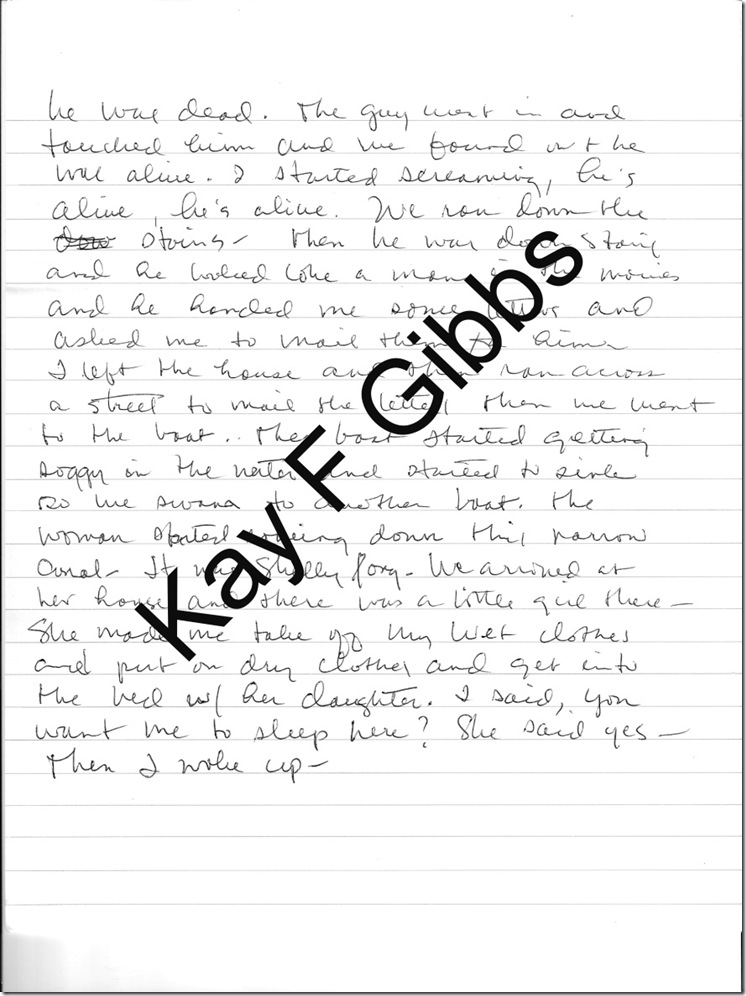 he was dead. The guy went in and
touched him and we found out he
was alive. I started screaming, he's
alive, he's alive. We ran down the
stairs - then he was down stairs
and he looked like a man in the movies
and he handed me some letters and
asked me to mail them for him
I left the house and then ran across
a street to mail the letter, then we went
to the boat.. The boat started getting
soggy in the water and started to sink
so we swam to another boat. The
woman started rowing down this narrow
Canal - It was Shelly
her house and there was a little girl there -
She made me take off my wet clothes
and put on dry clothes and get into
the bed w/ her daughter. I said, you
want me to sleep here? She said yes -
Then I woke up -
Kay F Gibbs